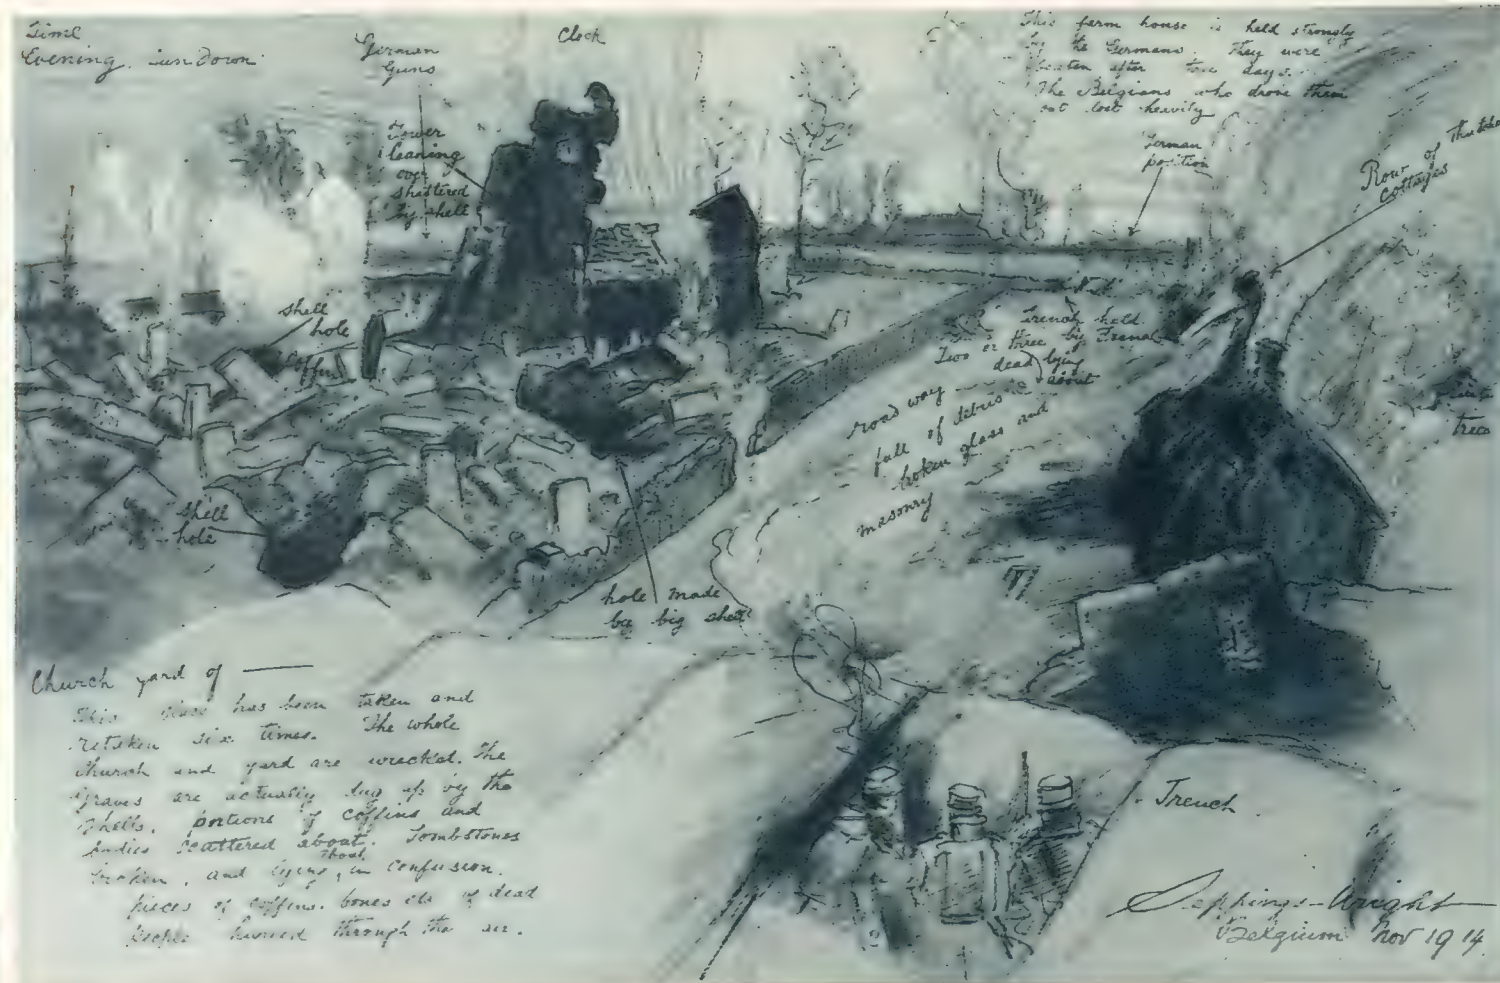 Time
Evening. Sun Down
German
Guns
Clock
This farm house is held strongly
by the Germans. They were
beaten after two days.
The Belgians who drove them
out lost heavily
Tower
leaning
over
shattered
by shell
German
position
Row of
cottages
shell
hole
Coffin
Trench held
Two or three by French
dead lying
about
road way
full of debris
broken glass and
masonry
trees
shell
hole
hole made
by big shell
Church yard of
This place has been taken and
retaken six times. The whole
Church and yard are wrecked. The
graves are actually dug up by the
shells. portions of coffins and
bodies scattered about. Tombstones
broken, and lying in confusion.
pieces of coffins. bones etc of dead
people hurried through the air.
Trench
Seppings-Wright
Belgium Nov 1914